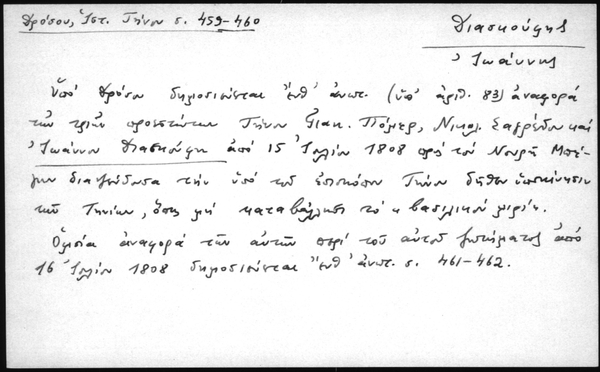 Δρόσου, Ἱστ. Τήνου σ. 459-460
Διασκούφης
Ἰωάννης
Ὑπὸ Δρόσου δημοσιεύεται ἔνθ' ἀνωτ. (ὑπ' ἀριθ. 83) ἀναφορὰ
τῶν τριῶν προεστώτων Τήνου Γιακ. Πώμερ, Νικολ. Σαγρέδου καὶ
Ἰωάννου Διασκούφη ἀπὸ 15 Ἰουλίου 1808 πρὸς τὸν
τὴν ὑπὸ τοῦ ἐπισκόπου Τήνου δῆθεν ὑποκίνησιν
τῶν Τηνίων, ὅπως μὴ τὸ βασιλικὸν
Ὁμοία ἀναφορὰ τῶν αὐτῶν περὶ τοῦ αὐτοῦ ζητήματος ἀπὸ
16 Ἰουλίου 1808 δημοσιεύεται ἔνθ' ἀνωτ. σ. 461-462.